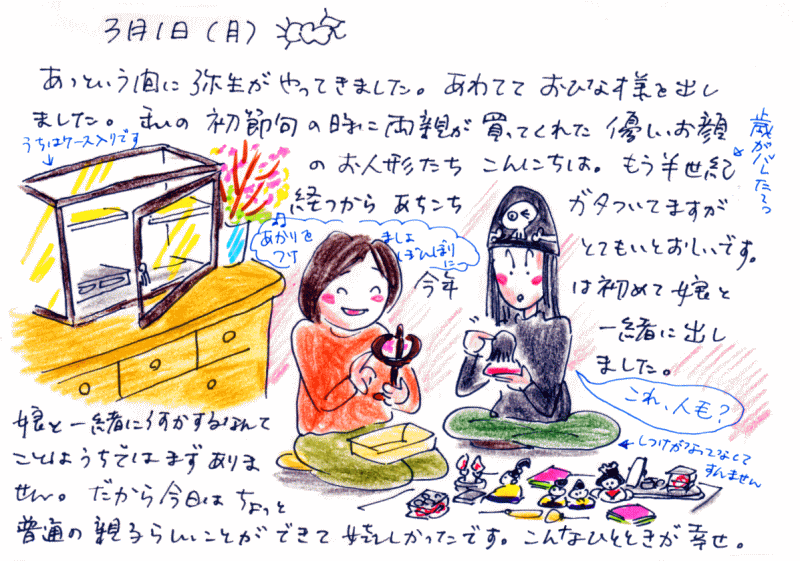 3月1日(月)
あっという間に弥生がやってきました。あわてておひな様を出し
ました。私の初節句の時に両親が買ってくれた優しいお顔
のお人形たちこんにちは。もう半世紀
経つからあちこち
ガタついてますが
とてもいとおしいです。
今年
は初めて娘と
一緒に出し
ました。
歳がバレたろっ
うちはケース入りです
あかりを
つけ
ましょ
ぼんぼり
に
これ、人毛?
しつけがなってなくて
すんません
娘と一緒に何かするなんて
ことはうちではまずありま
せん。だから今日はちょっと
普通の親子らしいことができて嬉しかったです。こんなひとときが幸せ。